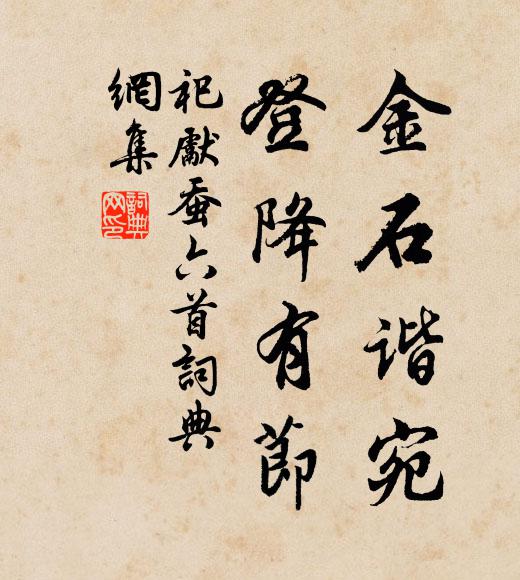 金石谐宛
登降有節
祀獻蚕六首詞典
網集
詞典
网印